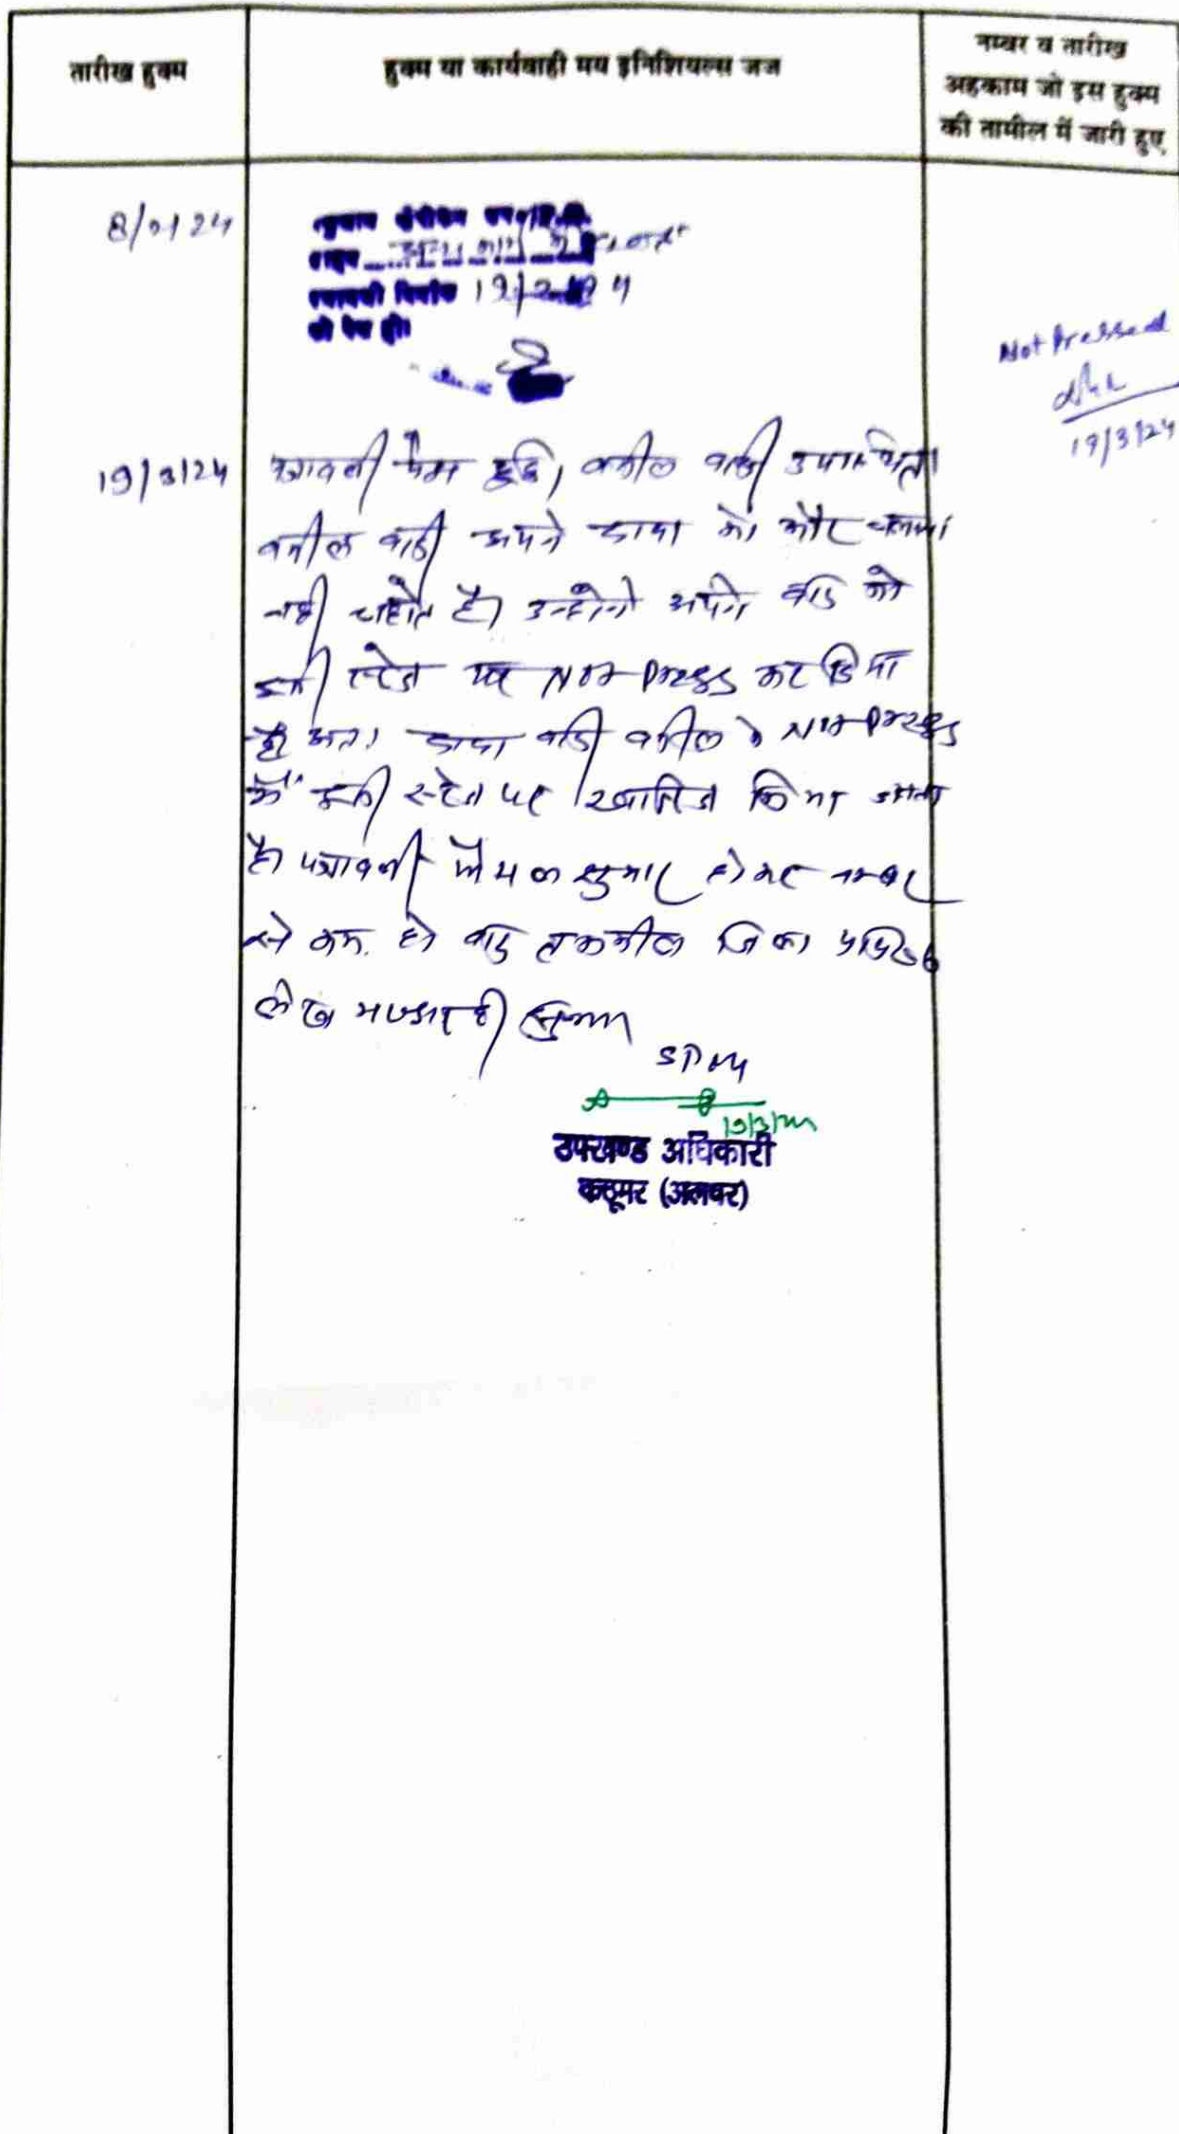 तारीख हुक्म
हुक्म या कार्यवाही मय इनिशियल्स जज
नम्बर व तारीख
अहकाम जो इस हुक्म
की तामील में जारी हुए
8/2/24
19/2/24
को पेश हो।
Not Pressed
19/3/24
19/3/24
पत्रावली पेश हुई। वकील वादी उपस्थित।
वकील वादी अपने दावा को और चलाना
नही चाहते है। उन्होने अपने वाद को
इसी स्टेज पर Not Press कर दिया
है। अतः दावा वादी वकील के Not Press
में इसी स्टेज पर खारिज किया जाता
है। पत्रावली फैसल शुमार होकर नम्बर
से कम हो बाद तकमील
SDM
19/3/24
उपखण्ड अधिकारी
कठूमर (अलवर)